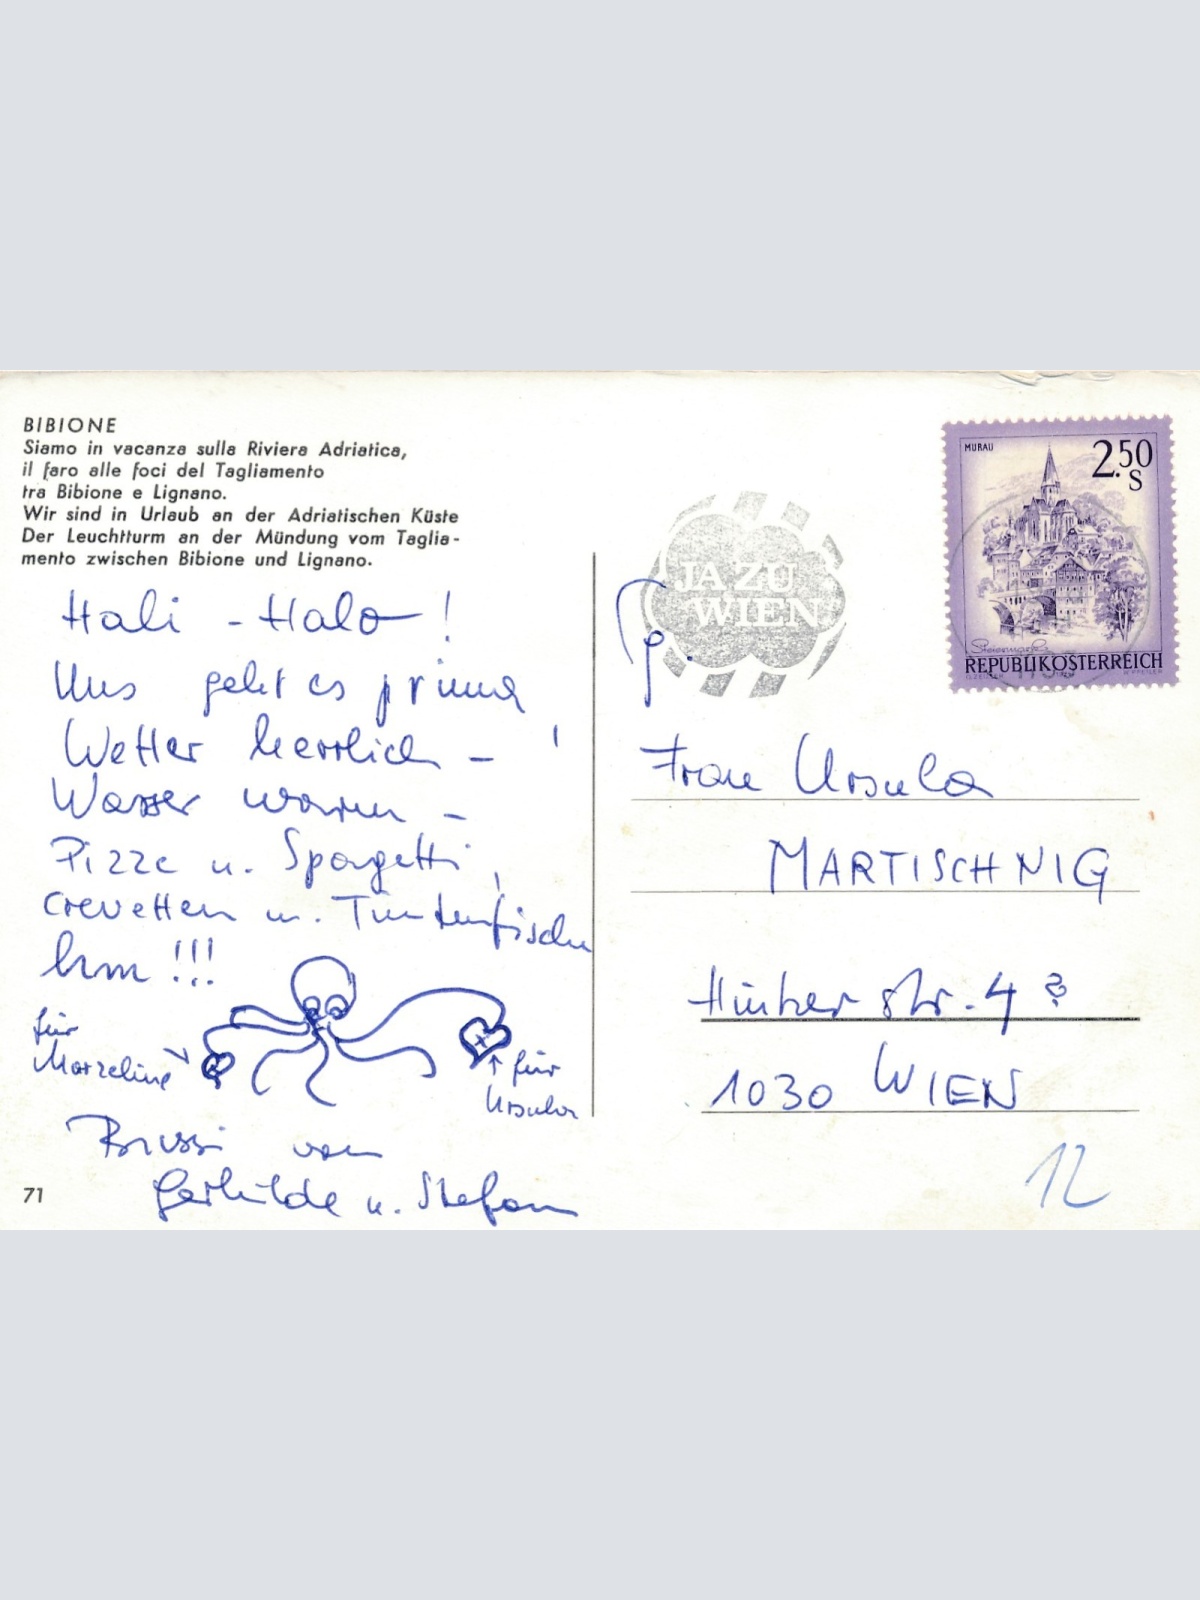 BIBIONE
Siamo in vacanza sulla Riviera Adriatica,
il faro alle foci del Tagliamento
tra Bibione e Lignano.
Wir sind in Urlaub an der Adriatischen Küste
Der Leuchtturm an der Mündung vom Taglia-
mento zwischen Bibione und Lignano.
Hali - Halo !
Uns geht es prima !
Wetter herrlich -
Wasser warm -
Pizze u. Spagetti,
Crevetten u. Tintenfische
hm !!!
für
Marzeline
für
Ursula
Bussi von
Gerhilde u. Stefan
71
JA ZU
WIEN
MURAU
2.50
S
Steiermark
REPUBLIK ÖSTERREICH
Frau Ursula
MARTISCHNIG
str. 4
1030 WIEN
12